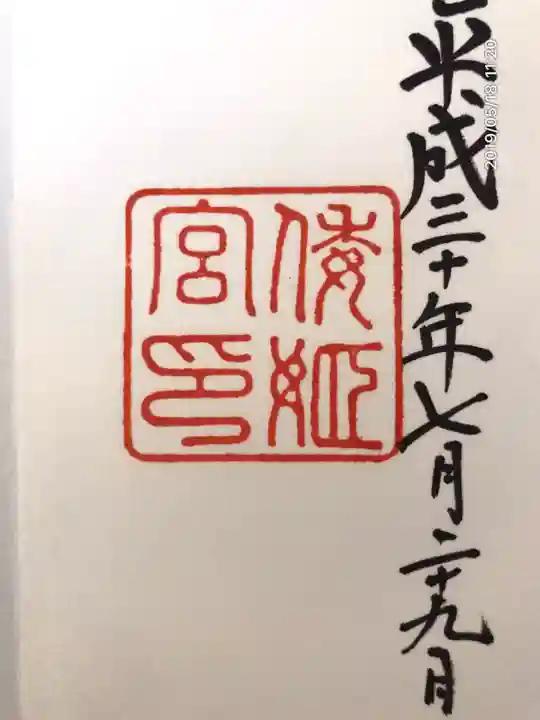 平成三十年七月二十九月
倭姫
宮印
2019/05/18 11:20